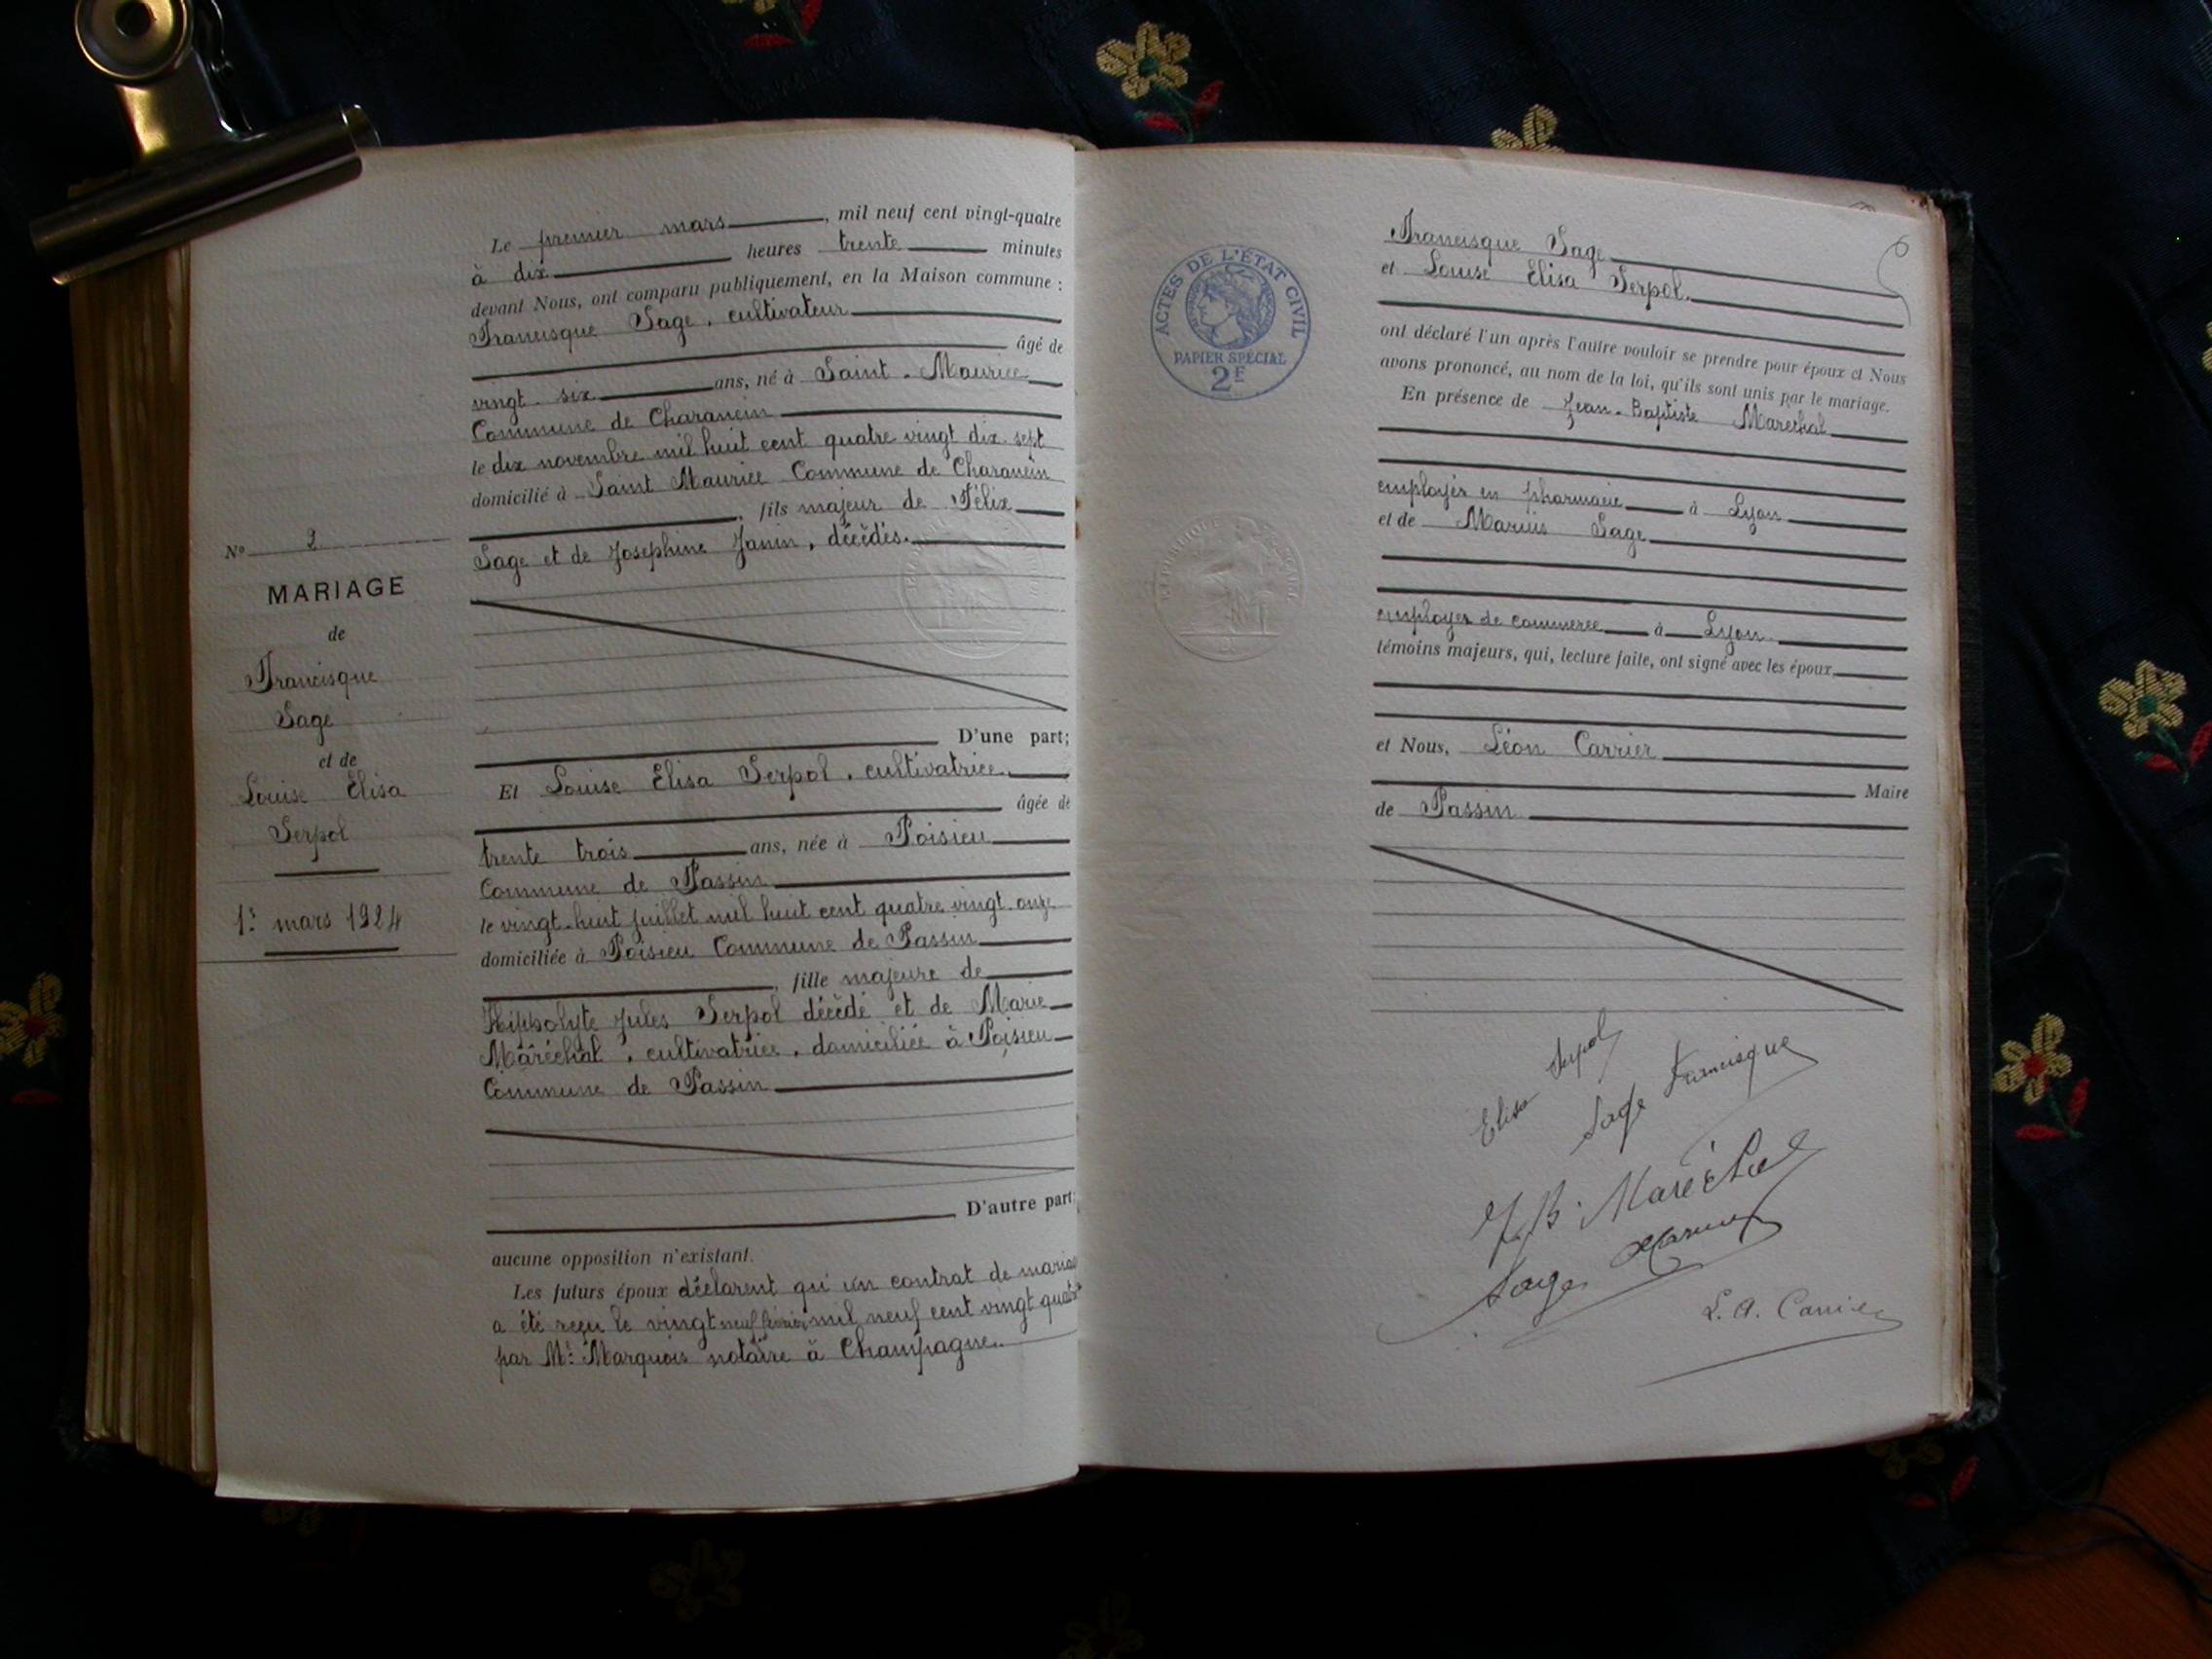 N° 2
MARIAGE
de
Francisque
Sage
et de
Louise Elisa
Serpol
1er mars 1924
Le premier mars, mil neuf cent vingt-quatre
à dix heures trente minutes
devant Nous, ont comparu publiquement, en la Maison commune :
Francisque Sage, cultivateur
âgé de
vingt-six ans, né à Saint-Maurice
Commune de Charancin
le dix novembre mil huit cent quatre vingt dix-sept
domicilié à Saint Maurice Commune de Charancin
, fils majeur de Félix
Sage et de Joséphine Janin, décédés.
D'une part;
Et Louise Elisa Serpol, cultivatrice.
âgée de
trente trois ans, née à Poisieu
Commune de Passin
le vingt-huit juillet mil huit cent quatre vingt-onze
domiciliée à Poisieu Commune de Passin
, fille majeure de
Hippolyte Jules Serpol décédé et de Marie
Maréchal, cultivatrice, domiciliée à Poisieu
Commune de Passin
D'autre part;
aucune opposition n'existant.
Les futurs époux déclarent qu'un contrat de mariage
a été reçu le vingt neuf février mil neuf cent vingt quatre
par Me Marquois notaire à Champagne.
ACTES DE L'ÉTAT CIVIL
PAPIER SPÉCIAL
2F
RÉPUBLIQUE FRANÇAISE
6
Francisque Sage
et Louise Elisa Serpol.
ont déclaré l'un après l'autre vouloir se prendre pour époux et Nous
avons prononcé, au nom de la loi, qu'ils sont unis par le mariage.
En présence de Jean-Baptiste Maréchal
employés en pharmacie à Lyon
et de Marius Sage
employés de commerce à Lyon
témoins majeurs, qui, lecture faite, ont signé avec les époux,
et Nous, Léon Carrier
Maire
de Passin
Elisa Serpol
Sage Francisque
J. B. Maréchal
Sage Marius
L. A. Carrier